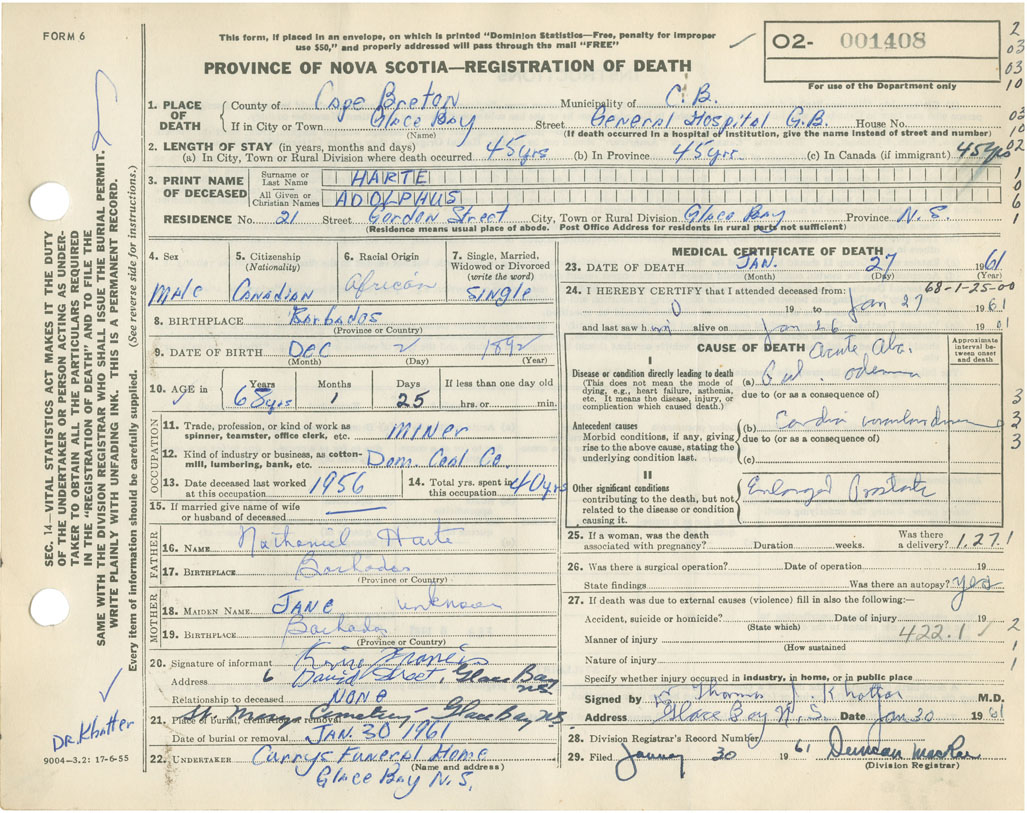 FORM 6
This form, if placed in an envelope, on which is printed "Dominion Statistics—Free, penalty for improper
use $50," and properly addressed will pass through the mail "FREE"
O2- 001408
For use of the Department only
PROVINCE OF NOVA SCOTIA—REGISTRATION OF DEATH
1. PLACE OF DEATH
County of Cape Breton Municipality of C.B.
If in City or Town Glace Bay Street General Hospital G.B. House No.
(Name) (If death occurred in a hospital or institution, give the name instead of street and number)
2. LENGTH OF STAY (in years, months and days)
(a) In City, Town or Rural Division where death occurred 45yrs (b) In Province 45yr. (c) In Canada (if immigrant) 45yrs
3. PRINT NAME OF DECEASED
Surname or Last Name HARTE
All Given or Christian Names ADOLPHUS
RESIDENCE No. 21 Street Gordon Street City, Town or Rural Division Glace Bay Province N.S.
(Residence means usual place of abode. Post Office Address for residents in rural parts not sufficient)
4. Sex Male
5. Citizenship (Nationality) Canadian
6. Racial Origin African
7. Single, Married, Widowed or Divorced (write the word) Single
8. BIRTHPLACE Barbados
(Province or Country)
9. DATE OF BIRTH Dec 2 1892
(Month) (Day) (Year)
10. AGE in Years 68yrs Months 1 Days 25 If less than one day old
hrs. or min.
OCCUPATION
11. Trade, profession, or kind of work as
spinner, teamster, office clerk, etc. Miner
12. Kind of industry or business, as cotton-
mill, lumbering, bank, etc. Dom. Coal Co.
13. Date deceased last worked
at this occupation 1956
14. Total yrs. spent in
this occupation 40yrs
15. If married give name of wife
or husband of deceased —
FATHER
16. NAME Nathaniel Harte
17. BIRTHPLACE Barbados
(Province or Country)
MOTHER
18. MAIDEN NAME JANE unknown
19. BIRTHPLACE Barbados
(Province or Country)
20. Signature of informant Francis
Address 6 David Street, Glace Bay N.S.
Relationship to deceased NONE
21. Place of burial, cremation or removal St Marys Cemetery - Glace Bay N.S.
Date of burial or removal JAN. 30 1961
22. UNDERTAKER Currys Funeral Home
(Name and address)
Glace Bay N.S.
MEDICAL CERTIFICATE OF DEATH
23. DATE OF DEATH JAN. 27 1961
(Month) (Day) (Year)
68-1-25-00
24. I HEREBY CERTIFY that I attended deceased from:
0 19 to Jan 27 1961
and last saw him alive on Jan 26 1961
CAUSE OF DEATH
Approximate interval between onset and death
I
Disease or condition directly leading to death
(This does not mean the mode of
dying, e.g., heart failure, asthenia,
etc. It means the disease, injury, or
complication which caused death.)
(a) Acute Pul. odema
due to (or as a consequence of)
Antecedent causes
Morbid conditions, if any, giving
rise to the above cause, stating the
underlying condition last.
(b) Cardio
due to (or as a consequence of)
(c)
II
Other significant conditions
contributing to the death, but not
related to the disease or condition
causing it.
Enlarged Prostate
25. If a woman, was the death
associated with pregnancy? Duration weeks. Was there
a delivery? 1.27.1
26. Was there a surgical operation? Date of operation 19
State findings Was there an autopsy? yes
27. If death was due to external causes (violence) fill in also the following:—
Accident, suicide or homicide? Date of injury 19
(State which)
Manner of injury 422.1
(How sustained
Nature of injury
Specify whether injury occurred in industry, in home, or in public place
Signed by Dr. Thomas J. Khattar M.D.
Address Glace Bay N.S. Date Jan 30 1961
28. Division Registrar's Record Number
29. Filed January 30 1961 Duncan MacRae
(Division Registrar)
SEC. 14—VITAL STATISTICS ACT MAKES IT THE DUTY
OF THE UNDERTAKER OR PERSON ACTING AS UNDER-
TAKER TO OBTAIN ALL THE PARTICULARS REQUIRED
IN THE "REGISTRATION OF DEATH" AND TO FILE THE
SAME WITH THE DIVISION REGISTRAR WHO SHALL ISSUE THE BURIAL PERMIT.
WRITE PLAINLY WITH UNFADING INK. THIS IS A PERMANENT RECORD.
Every item of information should be carefully supplied. (See reverse side for instructions.)
DR. Khatter
9004—3.2: 17-6-55
2
03
03
10
03
10
02
1
0
0
6
1
3
2
3
2
1
1